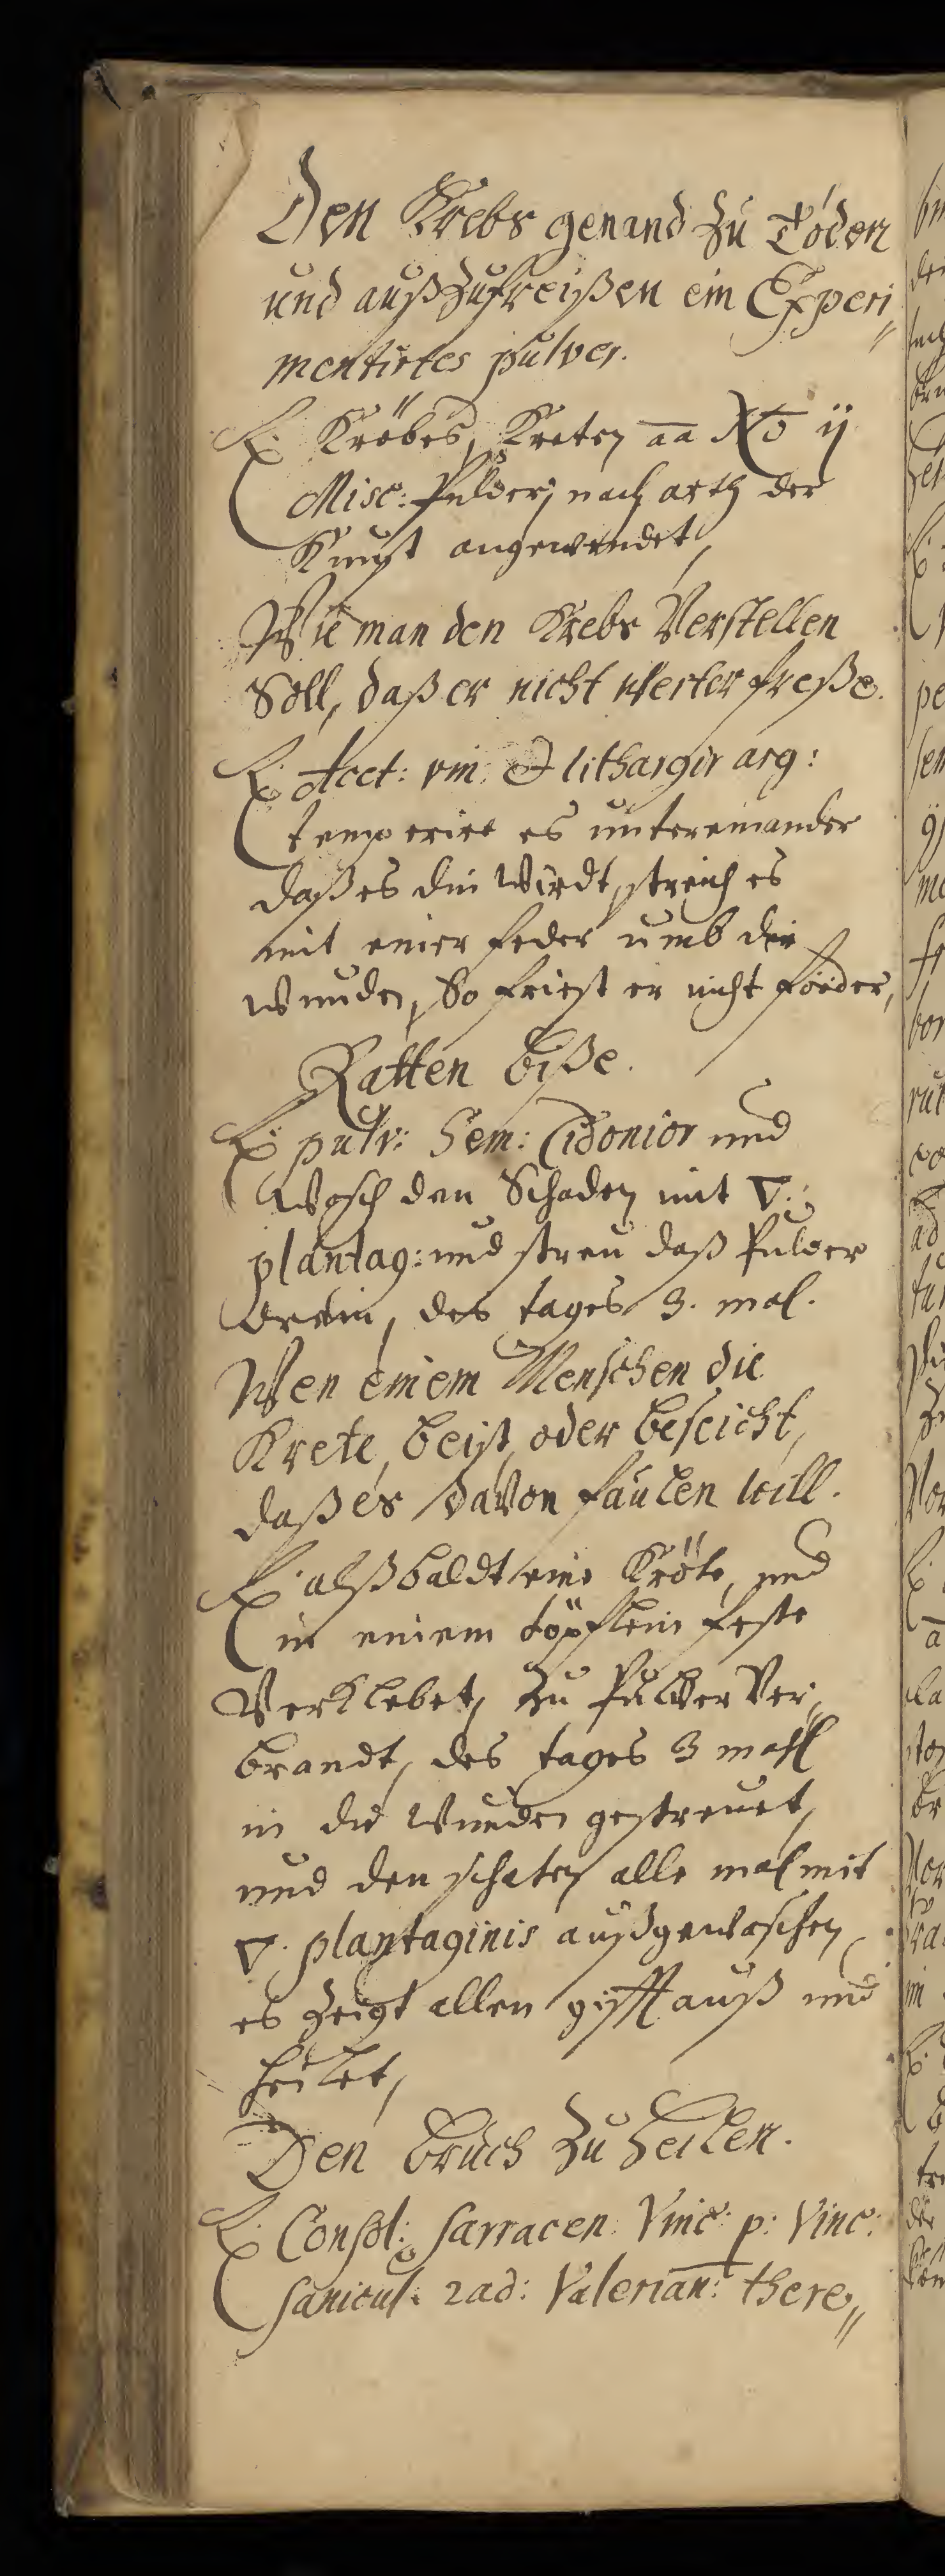 Den Krebs genand zu Töden
und außzufreißen ein Experi⸗
mentirtes pulver.
℞. Kröbes, Kreten aa No ij
Misc: Pulver, nach arth der
Kunst angewendet,
Wie man den Krebs Verstellen
Soll, daß er nicht weiter freße.
℞. Acet: vin. & lithargir arg:
temperire es untereinander
daß es din Wirdt, streich es
mit einer feder umb die
Wunden, So friest er nicht förder,
Ratten biße.
℞ pulv: Sem: Cidonior und
Wasch den Schaden mit ▽.
plantag: und streu daß Pulver
drein, des tages 3. mal.
Wen einem Menschen die
Krete, beist, oder beseicht,
daß es davon faulen will.
℞. alßbaldt eine Kröte, und
in einem töpflein feste
Verklebet, zu Pulver Ver⸗
brandt, des tages 3 mahl
in die Wunden gestreuet,
und den schaten alle mal mit
▽. plantaginis außgewaschen,
es Zeigt allen gifft auß und
heilet,
Den bruch zu heilen.
℞. Consol: sarracen: Vinc: p: Vinc:
sanicul: rad: Valerian: there⸗